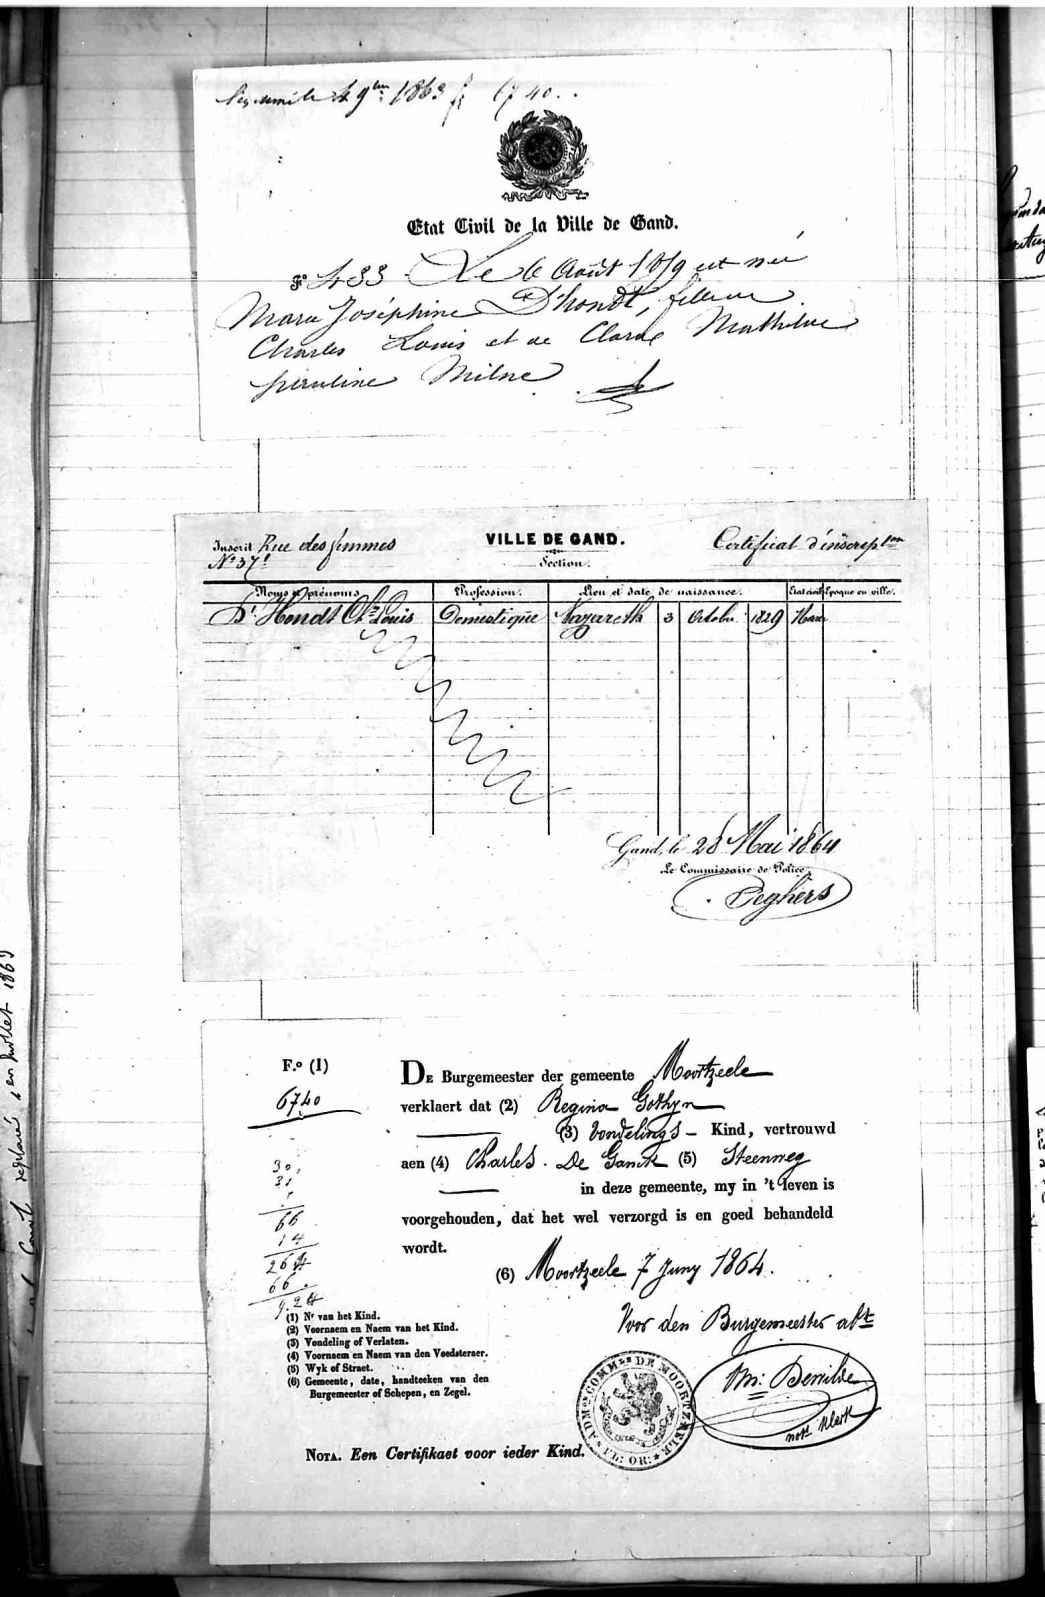 1863 6740.
Etat Civil de la Ville de Gand.
F° 433 Le 6 Août 1859 est née
Marie Joséphine D'hondt, fille de
Charles Louis et de Clara Mathilde
Milne
Inscrit Rue des femmes
N° 37
VILLE DE GAND.
Section.
Certificat d'inscrip^tion
Noms et prénoms. Profession. Lieu et date de naissance. Etat civil Epoque en ville.
D'Hondt Ch^s Louis Domestique Nazareth 3 Octobre 1829 Marié
Gand, le 28 Mai 1864
Le Commissaire de Police,
Peghers
F.° (I)
6740
DE Burgemeester der gemeente Moortzeele
verklaert dat (2) Regina Gothyn
(3) Vondelings – Kind, vertrouwd
aen (4) Charles De Ganck (5) Steenweg
in deze gemeente, my in 't leven is
voorgehouden, dat het wel verzorgd is en goed behandeld
wordt.
(6) Moortzeele 7 Juny 1864.
30,
31
66
14
264
66
9.24
(1) N^r van het Kind.
(2) Voornaem en Naem van het Kind.
(3) Vondeling of Verlaten.
(4) Voornaem en Naem van den Voedsteraer.
(5) Wyk of Straet.
(6) Gemeente, date, handteeken van den
Burgemeester of Schepen, en Zegel.
Voor den Burgemeester abt
Dewilde
not^s klerk
ADM^on COMM^le DE MOORTZEELE
FL: OR:
NOTA. Een Certifikaet voor ieder Kind.